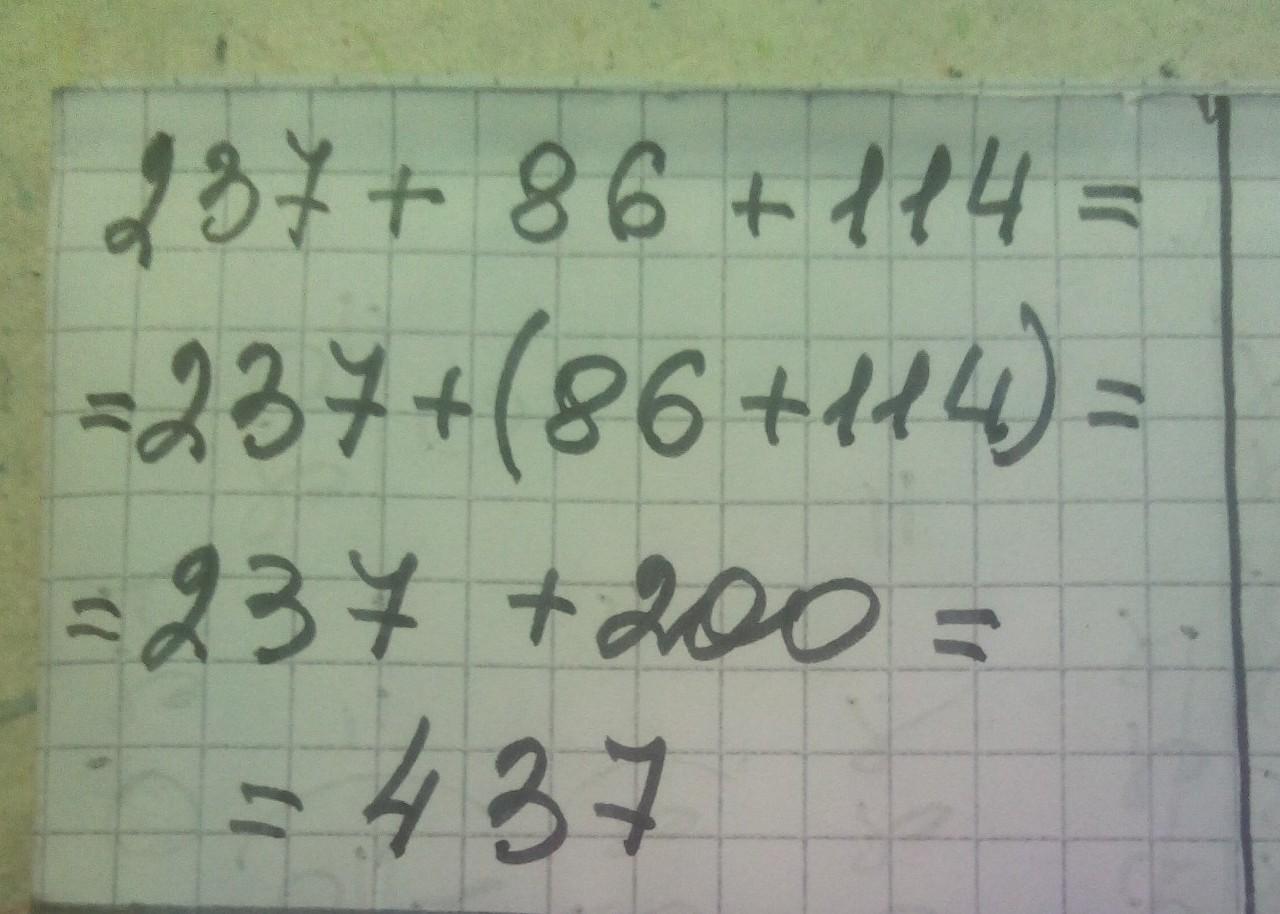 237 + 86 + 114 =
= 237 + (86 + 114) =
= 237 + 200 =
= 437